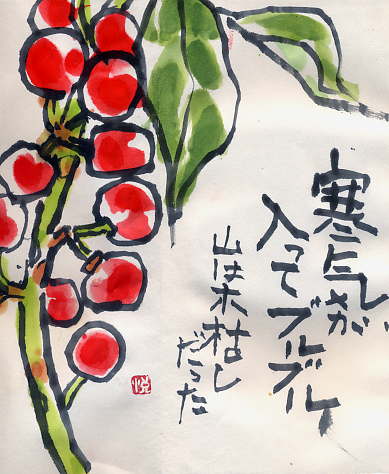 寒気が
入ってブルブル
山は木枯し
だった
悦